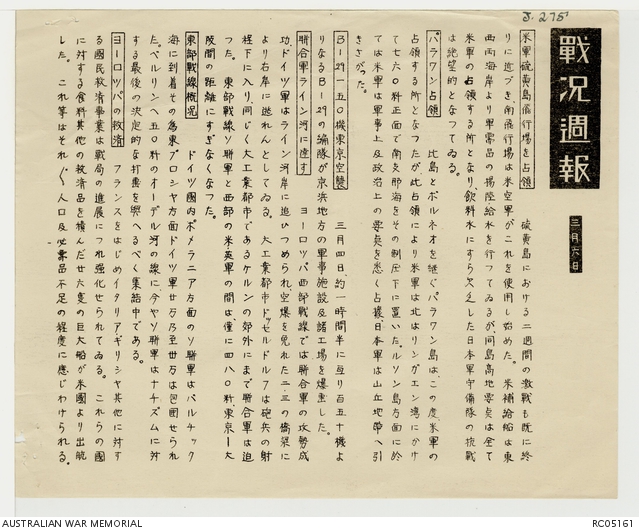 J. 275
戰況週報
三月六日
米軍硫黄島飛行場を占領 硫黄島における二週間の激戰も既に終
りに近づき、南飛行場は米空軍がこれを使用し始めた。米補給船は東
西両海岸より軍需品の揚陸給水を行つてゐるが、同島高地要点は全て
米軍の占領する所となり、飲料水にすら欠乏した日本軍守備隊の抗戰
は絶望的となつてゐる。
パラワン占領 比島とボルネオを繼ぐパラワン島は、この度米軍の
占領する所となつたが此占領により米軍は北はリンガエン湾にかけ
て七六〇粁正面で南支那海をその制圧下に置いた。ルソン島方面に於
ては米軍は軍事上及政治上の要点を悉く占據、日本軍は山丘地帶へ引
きさがつた。
B-29一五〇機東京空襲 三月四日、約一時間半に亙り百五十機よ
りなるB-29の編隊が京浜地方の軍事施設及諸工場を爆撃した。
聯合軍ライン河に達す ヨーロッパ西部戰線では聯合軍の攻勢成
功、ドイツ軍はライン河岸に追ひつめられ、空爆を免れた二、三の橋梁に
より右岸に逃れんとしてゐる。大工業都市ドッセルドルフは砲兵の射
程下に入り、同じく大工業都市であるケルンの郊外にまで聯合軍は迫
つた。東部戰線ソ聯軍と西部の米英軍の間は、僅に四八〇粁、東京ー大
阪間の距離にすぎなくなつた。
東部戰線概況 ドイツ國内ポメラニア方面のソ聯軍はバルチック
海に到着その為東プロシヤ方面ドイツ軍廿万乃至卅万は包囲せられ
た。ベルリンへ五〇粁のオーデル河の線に、今やソ聯軍はナチズムに対
する最後の決定的な打撃を與へるべく集結中である。
ヨーロツパの救済 フランスをはじめイタリア、ギリシヤ其他に対す
る國民救済事業は戰局の進展につれ強化せられてゐる。これらの國
に対する食料其他の救済品を積んだ廿六隻の巨大船が米國より出航
した。これ等はそれ〲人口及必需品不足の程度に應じわけられる。
AUSTRALIAN WAR MEMORIAL
RC05161